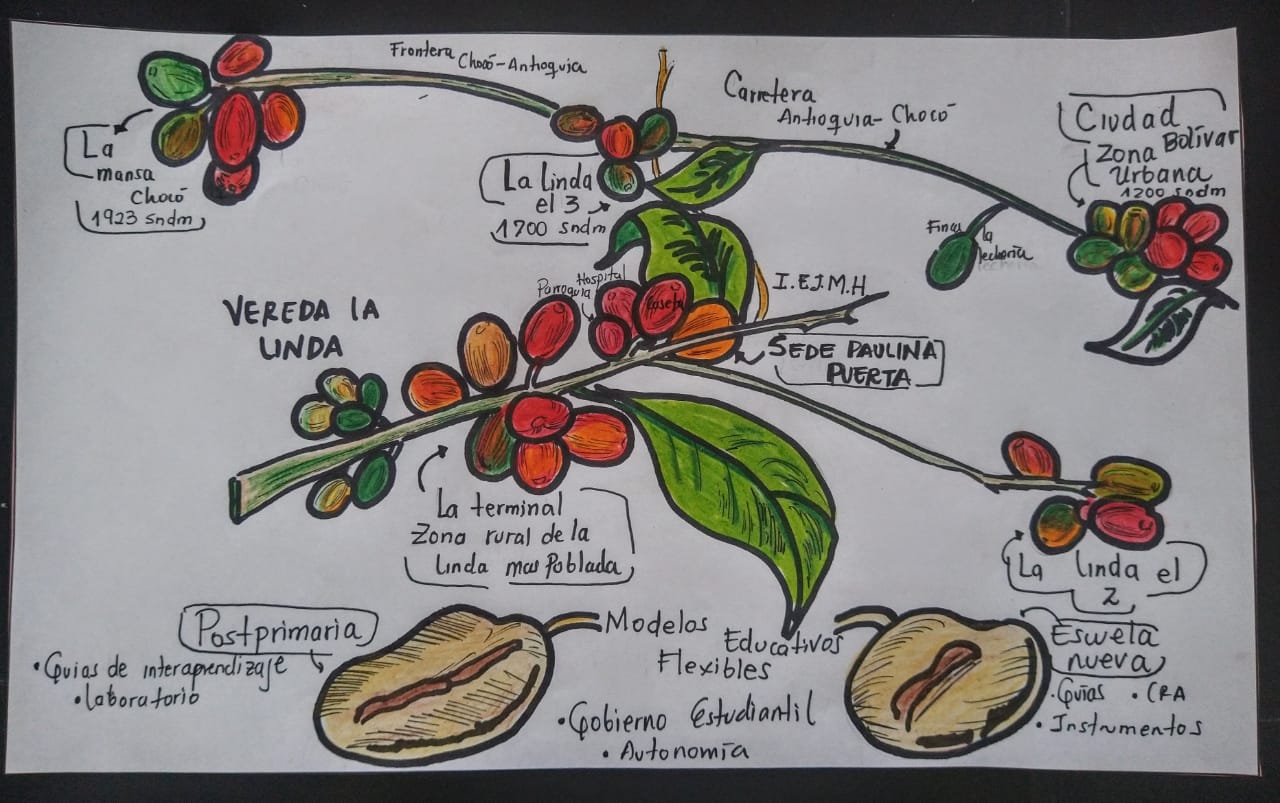 Frontera
Chocó-Antioquia
La
mansa
Chocó
1923 sndm
La linda
el 3
1700 sndm
Carretera
Antioquia-Chocó
Ciudad
Bolívar
Zona
Urbana
1200 sndm
Finca la
lechería
VEREDA LA
LINDA
Parroquia
Hospital
Caseta
I.E.J.M.H
SEDE PAULINA
PUERTA
La terminal
Zona rural de la
linda mas Poblada
La linda el
2
Postprimaria
• Guias de interaprendizaje
• laboratorio
Modelos
Educativos
Flexibles
• Gobierno Estudiantil
• Autonomía
Escuela
nueva
• Guías • CRA
• Instrumentos